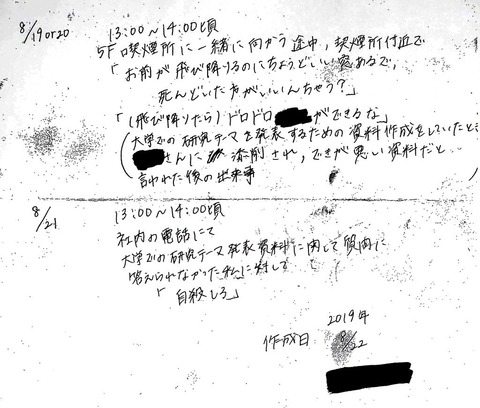 8/19or20 13:00〜14:00頃
5F喫煙所に一緒に向かう途中，喫煙所付近で
「お前が飛び降りるのにちょうどいい窓あるで，
死んどいた方がいいんちゃう？」
「(飛び降りたら)ドロドロ ができるな」
(大学での研究テーマを発表するための資料作成をしていたとき
さんに 添削され，できが悪い資料だと..
言われた後の出来事
8/21 13:00〜14:00頃
社内の電話にて
大学での研究テーマ発表資料に関して質問に
答えられなかった私に対して
「自殺しろ」
2019年
作成日 8/22